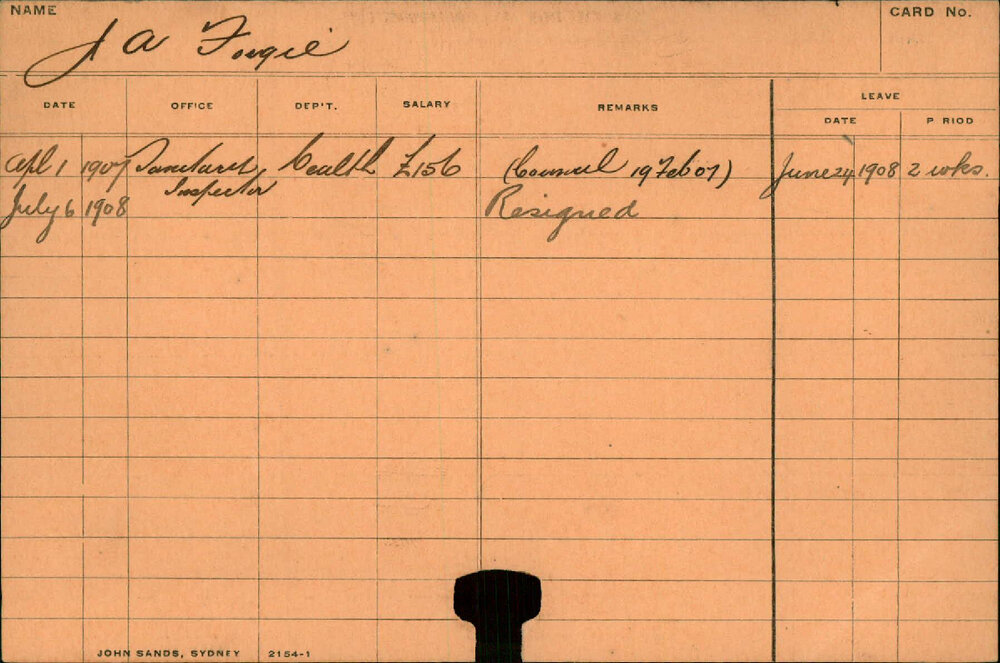 NAME
CARD No.
J A Forgie
DATE OFFICE DEP'T. SALARY REMARKS LEAVE
DATE P RIOD
Apl 1 1907 Sanitary Health £156 (Council 19 Feb 07) June 24 1908 2 wks.
Inspector
July 6 1908 Resigned
JOHN SANDS, SYDNEY 2154-1